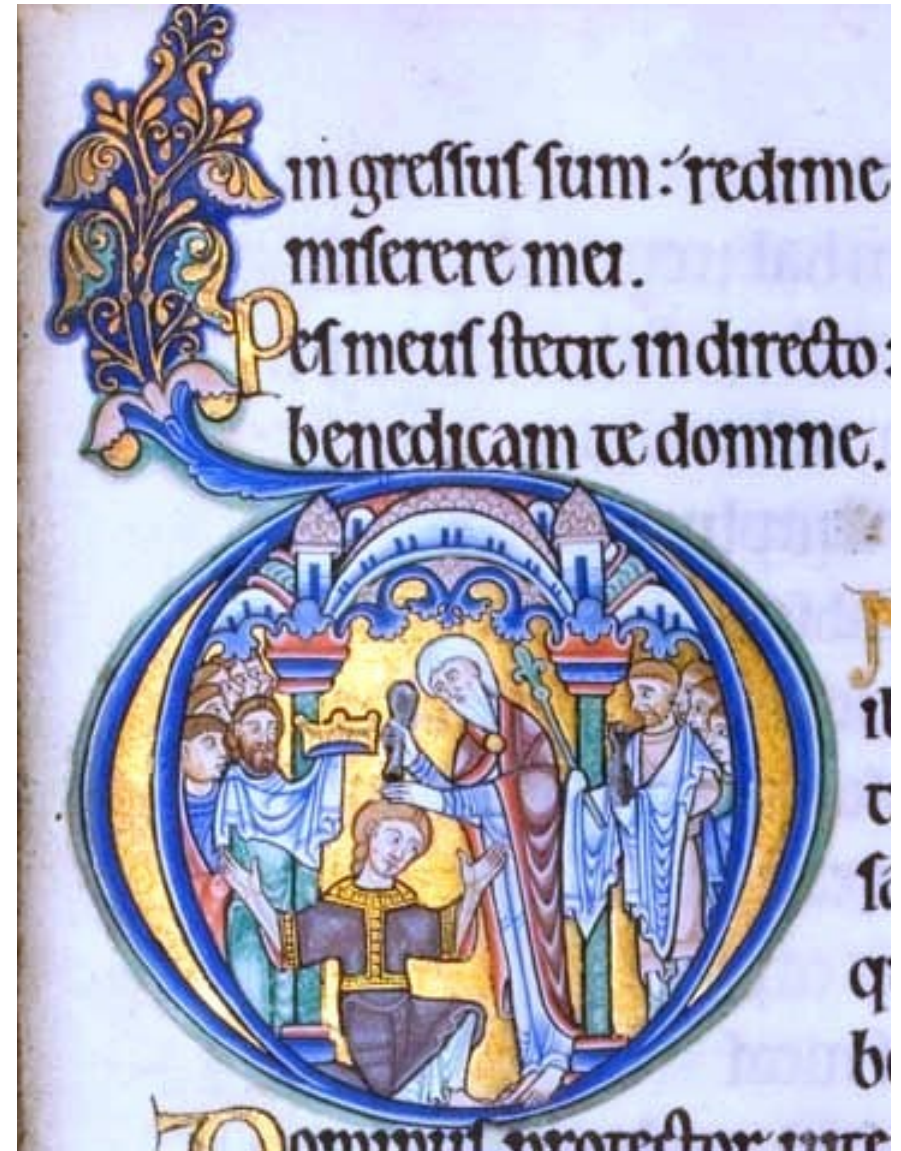 in gressus sum : redime
miserere mei.
Pes meus stetit in directo :
benedicam te domine.
D
il
t
sa
q
be
Dominus protector vite